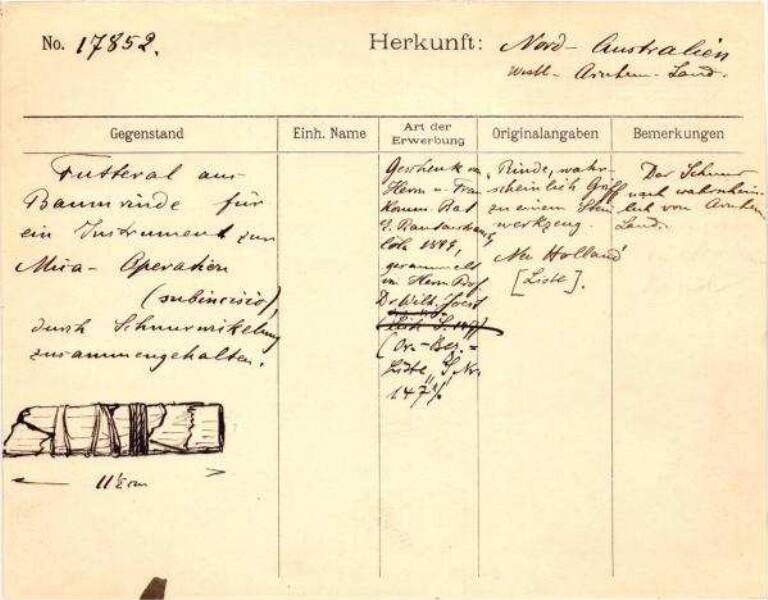 No. 17852.
Herkunft: Nord-Australien
Westl-Arnhem-Land.
Gegenstand
Einh. Name
Art der
Erwerbung
Originalangaben
Bemerkungen
Futteral aus
Baumrinde für
ein Instrument zur
Mica-Operation
(subincisio)
durch Schnurwickelung
zusammengehalten.
11½ cm
Geschenk von
Herrn u. Frau
Komm. Rat
E. Rautenstrauch,
Cöln 1899,
gesammelt
von Herrn Prof.
Dr. Wilh. Joest
(Or.-Bez.=
Liste, S. Nr.
147
„Rinde, wahr-
scheinlich Griff
zu einem Stein-
werkzeug.
Neu Holland"
[Liste].
Der Schnur
nach wahrschein-
lich von Arnhem
Land.